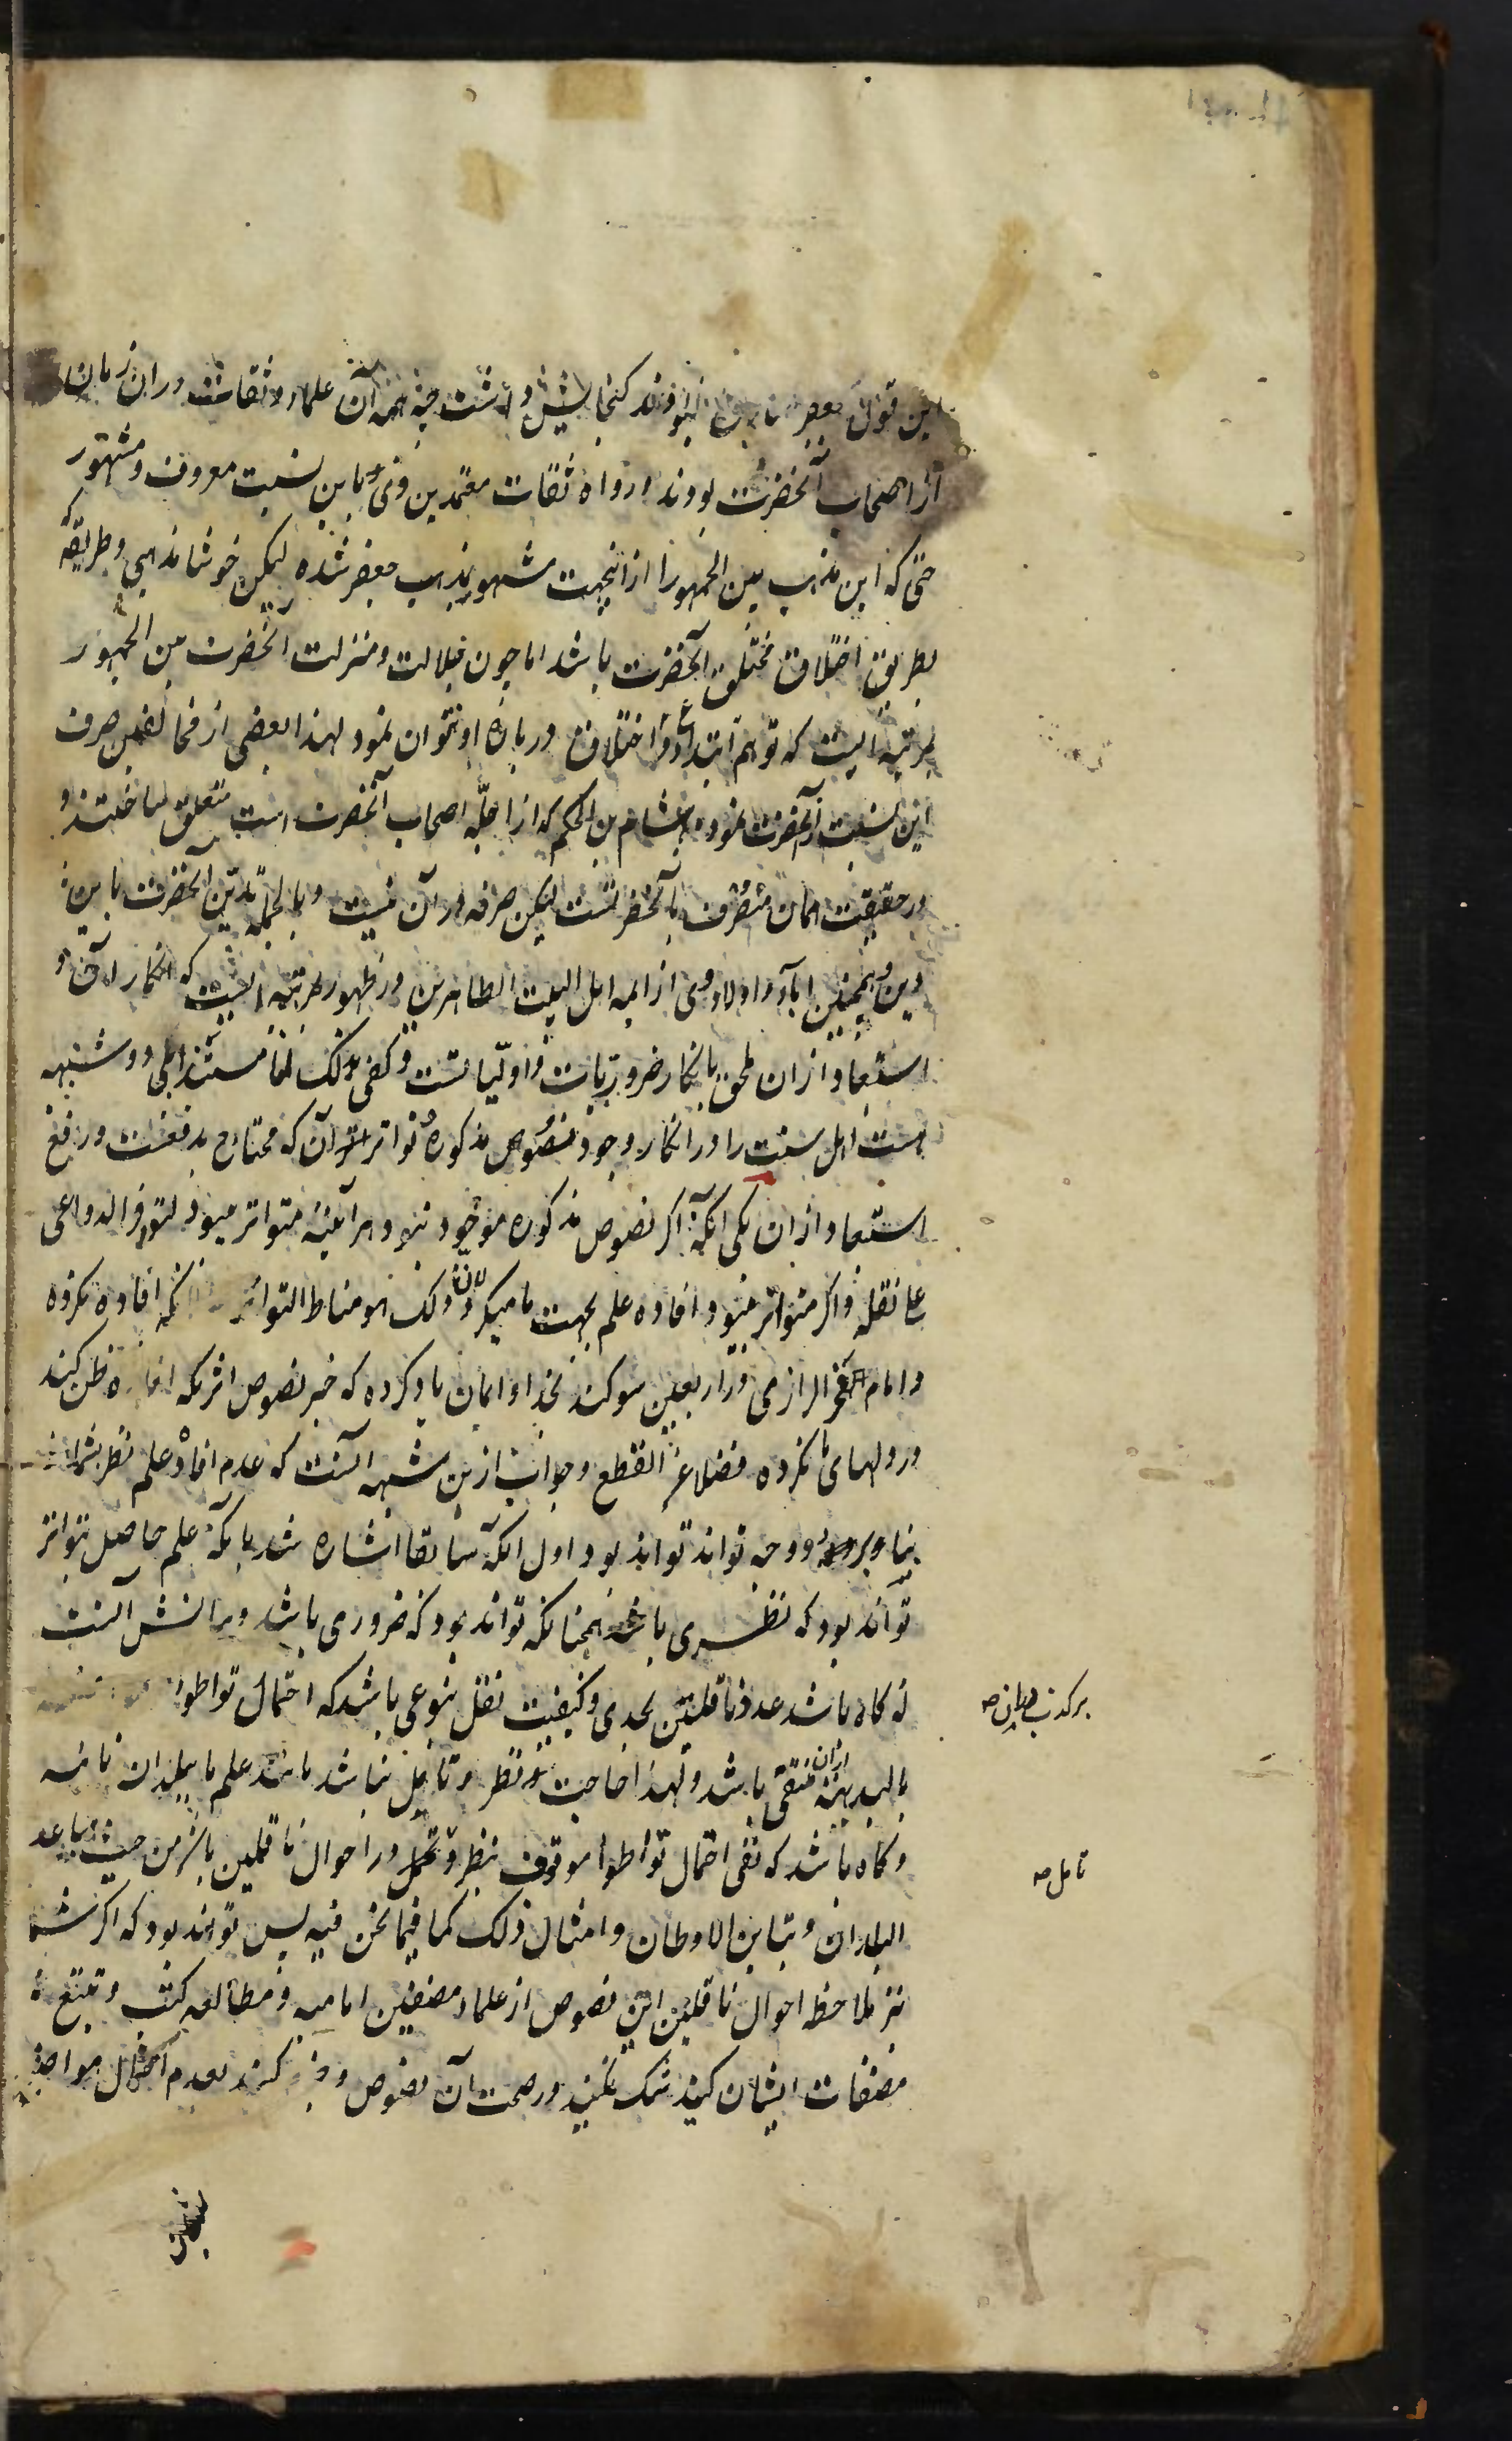 این قول جعفر نبودند کنجایش داشت چه همه آن علماء و ثقات در ان زمان
از اصحاب آنحضرت بودند و رواة ثقات معتمدین وی و باین نسبت معروف و مشهور
حتی که این مذهب بین الجمهور از اینجهت مشهور بمذهب جعفر شده لیکن خوشا مذهبی و طریقه که
بطریق اخلاق آنحضرت باشد اما چون جلالت و منزلت آنحضرت بین الجمهور
بمرتبه ایست که توهم ابتداع و اختلاق در باره او نتوان نمود لهذا بعضی از مخالفین صرف
این نسبت از آنحضرت نموده بهشام بن الحکم که از اجله اصحاب آنحضرت است متعلق ساختند و
در حقیقت همان متصرف بآنحضرتست لیکن صرفه در آن نیست و بالجمله تدین آنحضرت باین
دین و همچنین آباء و اولاد وی از ائمه اهل البیت الطاهرین در ظهور بمرتبه ایست که انکار آن و
استبعاد ازان ملحق بانکار ضروریات و اولیاتست و کفی بذلک لنا مستندا بلی دو شبهه
هست اهل سنت را در انکار وجود نصوص مذکوره و تواتر آن که محتاج بدفعست و رفع
استبعاد ازان یکی آنکه اگر نصوص مذکوره موجود بود هرآینه متواتر میبود لتوفر الدواعی
علی نقله و اگر متواتر میبود افاده علم بجهت ما میکرد لان ذلک هو مناط التواتر افاده نکرده
و امام الفخر الرازی در اربعین سوکند بخدا و ایمان یاد کرده که خبر نصوص اثریکه افاده ظن کند
در دلهای ما نکرده فضلا عن القطع و جواب ازین شبهه آنست که عدم افاده علم نظر بشما
بنا بر دو وجه تواند بود اول آنکه سابقا اشاره شد بانکه علم حاصل بتواتر
تواند بود که نظری باشد همچنانکه تواند بود که ضروری باشد و بیانش آنست
که کاه باشد عدد ناقلین بحدی و کیفیت نقل بنوعی باشد که احتمال تواطؤ
بالبدیهه ازان منتفی باشد و لهذا حاجت بنظر و تامل نباشد مانند علم ما ببلدان نائیه
و کاه باشد که نفی احتمال تواطؤ موقوف بنظر و تحمل در احوال ناقلین باشد من حیث تباعد
البلدان و تباین الاوطان و امثال ذلک کما فیما نحن فیه پس تواند بود که اگر شما
نیز ملاحظه احوال ناقلین این نصوص از علماء مصنفین امامیه و مطالعه کتب و تتبع
مصنفات ایشان کنید شک نکنید در صحت آن نصوص و کنید بعدم احتمال مواضعه
بر کذب
تامل صح